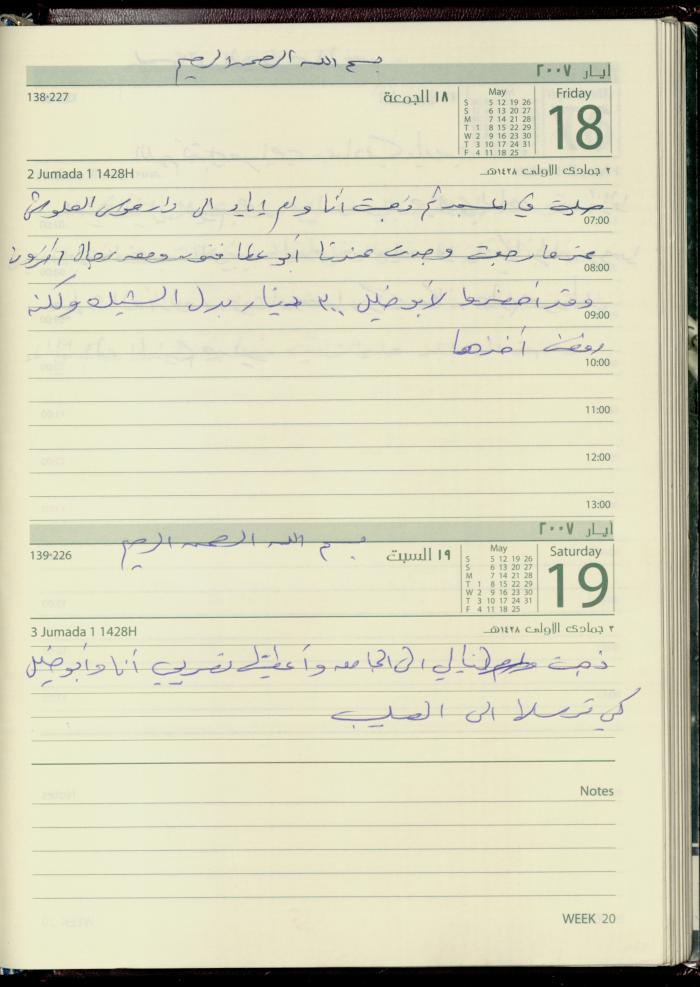 بسم الله الرحمن الرحيم
أيار ٢٠٠٧
138-227
١٨ الجمعة
May
S 5 12 19 26
S 6 13 20 27
M 7 14 21 28
T 1 8 15 22 29
W 2 9 16 23 30
T 3 10 17 24 31
F 4 11 18 25
Friday
18
2 Jumada 1 1428H
٢ جمادى الاولى ١٤٢٨هـ
صليت في المسجد ثم ذهبت أنا وام اياد الى دار موسى
07:00
عندما رجعت وجدت عندنا أبو عطا ومعه رجال آخرون
08:00
وقد أحضروا لأبو خليل ٣٠٠ دينار بدل الشيك ولكنه
09:00
رفض أخذها
10:00
11:00
12:00
13:00
أيار ٢٠٠٧
بسم الله الرحمن الرحيم
139-226
١٩ السبت
May
S 5 12 19 26
S 6 13 20 27
M 7 14 21 28
T 1 8 15 22 29
W 2 9 16 23 30
T 3 10 17 24 31
F 4 11 18 25
Saturday
19
3 Jumada 1 1428H
٣ جمادى الاولى ١٤٢٨هـ
ذهبت ليالي الى الجامعه أنا وأبو خليل
كي ترسلا الى الصليب
Notes
WEEK 20